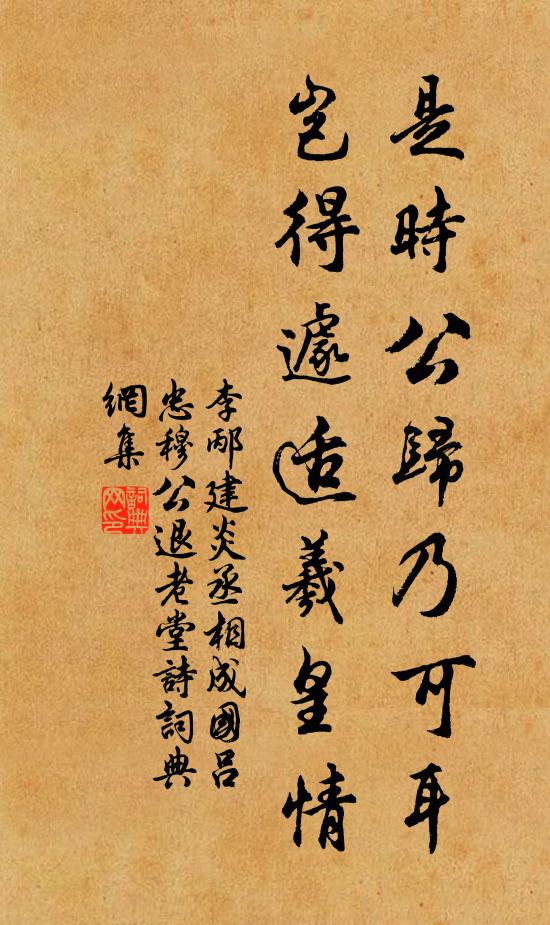 是時公歸乃可耳
豈得遽适羲皇情
李邴建炎丞相成國呂
忠穆公退老堂詩詞典
網集
詞典
网印